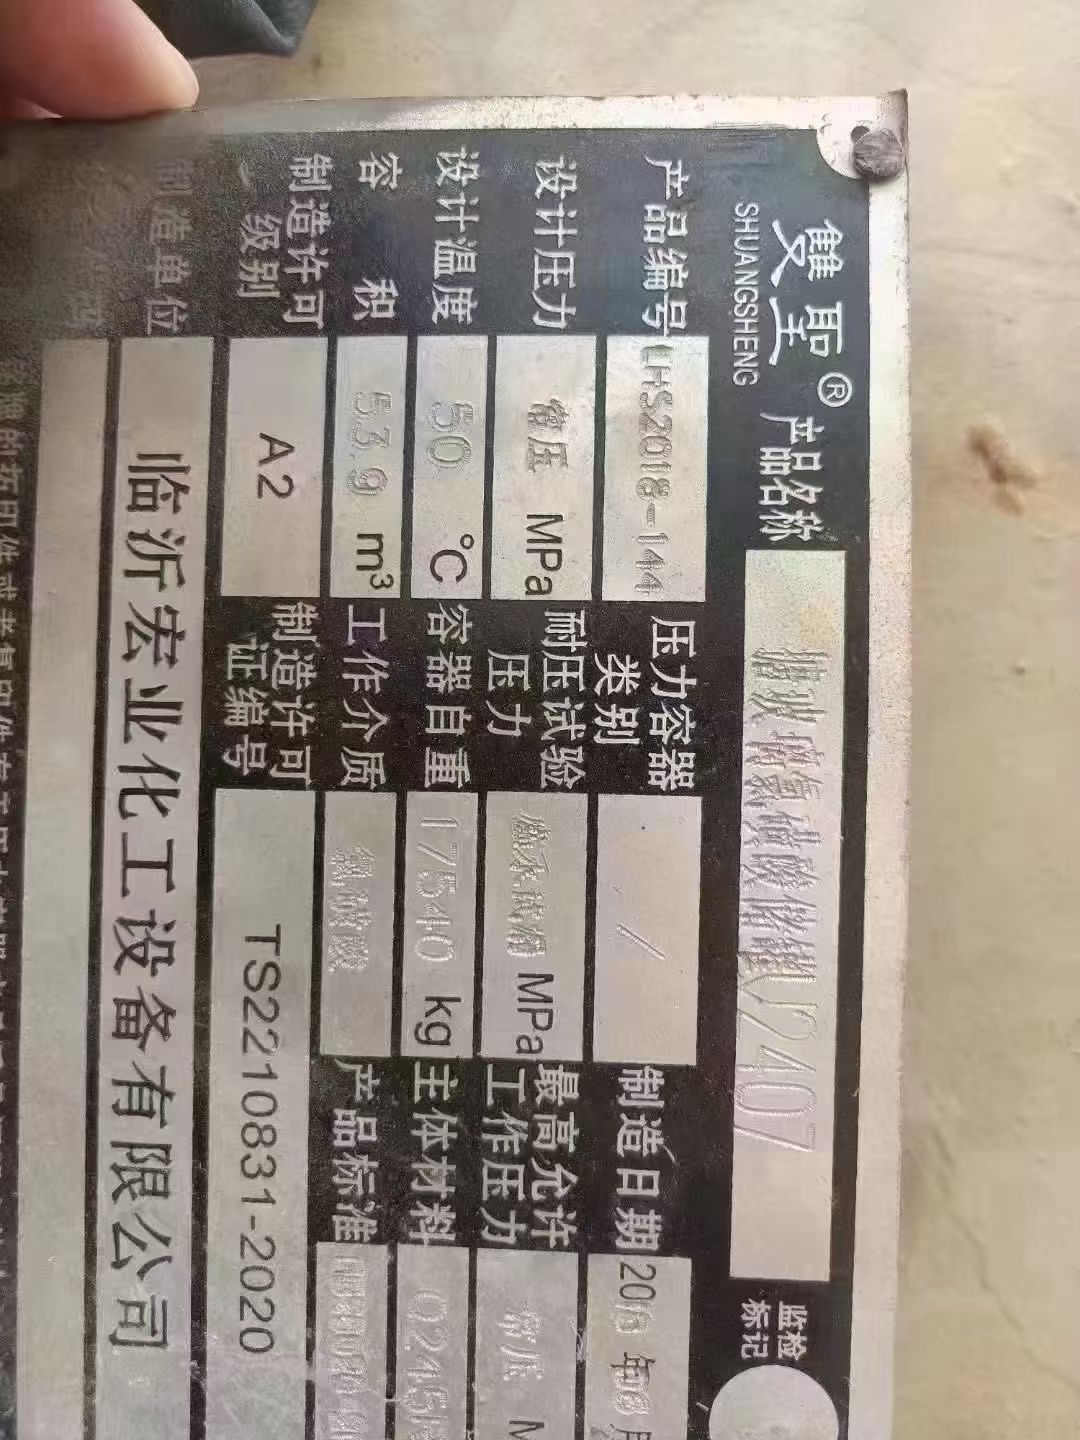 雙聖®
SHUANGSHENG
产品名称 搪玻璃氯磺酸储罐V2407
监检
标记
产品编号 LHS2018-144 压力容器类别 / 制造日期 20 年 月
设计压力 常压 MPa 耐压试验压力 盛水试漏 MPa 最高允许工作压力 常压
设计温度 50 ℃ 容器自重 17540 kg 主体材料 Q245R
容积 53.9 m³ 工作介质 氯磺酸 产品标准
制造许可级别 A2 制造许可证编号 TS2210831-2020
制造单位 临沂宏业化工设备有限公司